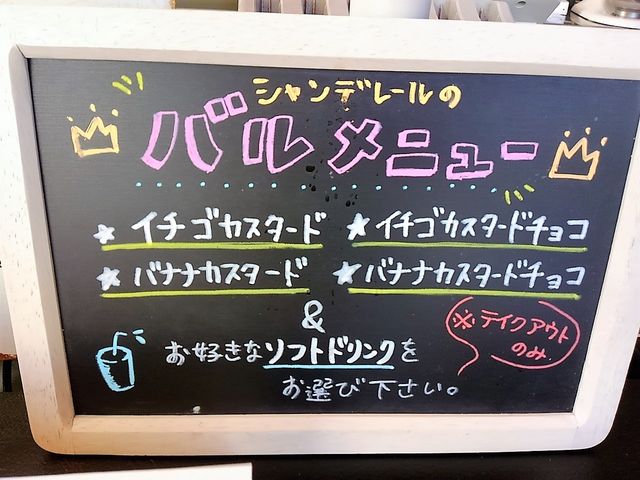 シャンデレールの
バルメニュー
★ イチゴカスタード
★ イチゴカスタードチョコ
★ バナナカスタード
★ バナナカスタードチョコ
&
お好きなソフトドリンクを
お選び下さい。
※テイクアウト
のみ